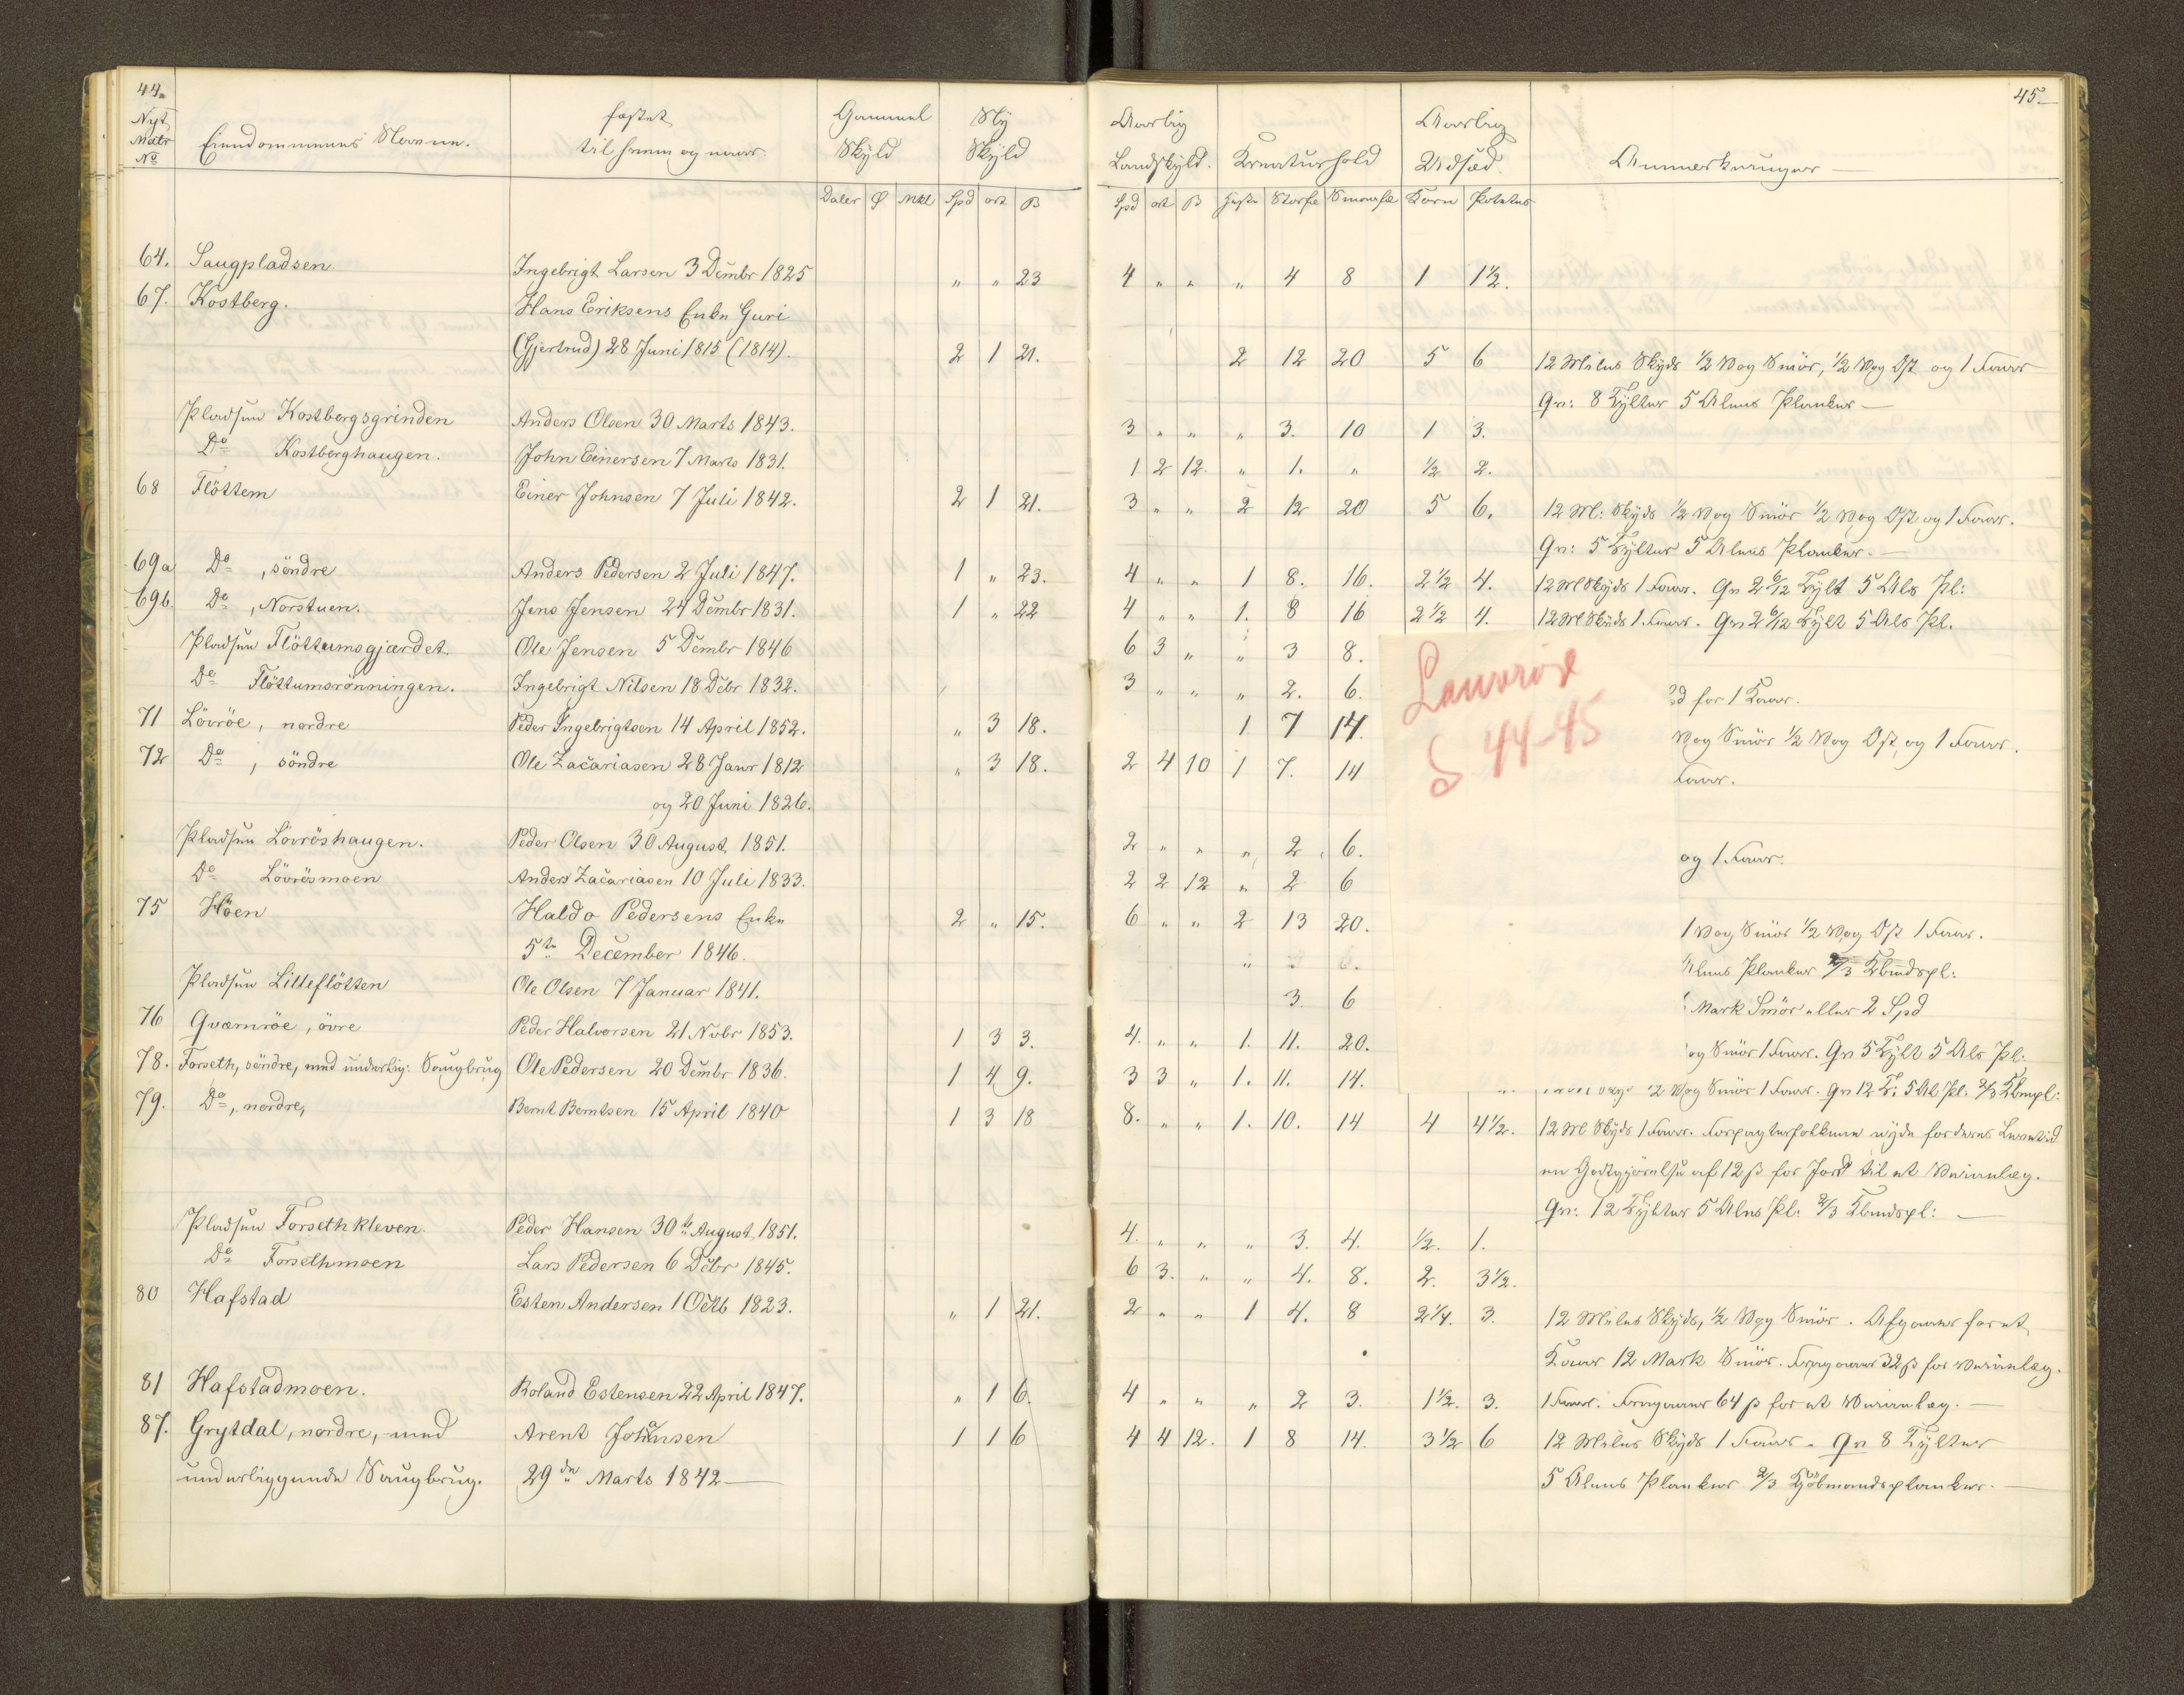 44.
Nyt Matr No
Eiendommenes Navne.
fæstet til hvem og naar.
Gammel Skyld
Ny Skyld
Daler Mkl Spd ort ß
64. Saugpladsen Ingebrigt Larsen 3 Dcmbr 1825 " " 23
67. Kostberg. Hans Eriksens Enke Guri
(Gjertrud) 28 Juni 1815 (1814). 2 1 21.
Pladsen Kostbergsgrinden Anders Olsen 30 Marts 1843.
Do Kostberghaugen. John Einersen 7 Marts 1831.
68 Flöttem Einer Johnsen 7 Juli 1842. 2 1 21.
69a Do, söndre Anders Pedersen 2 Juli 1847. 1 " 23.
69b. Do, Norstuen. Jens Jensen 24 Dcmbr 1831. 1 " 22
Pladsen Flöttumsgjærdet. Ole Jensen 5 Dcmbr 1846
Do Flöttumsrönningen. Ingebrigt Nilsen 18 Dcbr 1832.
71 Lövröe, nordre Peder Ingebrigtsen 14 April 1852. " 3 18.
72 Do, söndre Ole Zacariasen 28 Janr 1812 " 3 18.
og 20 Juni 1826.
Pladsen Lövröshaugen. Peder Olsen 30 August 1851.
Do Lövrösmoen Anders Zacariasen 10 Juli 1833.
75 Höen Haldo Pedersens Enke 2 " 15.
5te December 1846.
Pladsen Lilleflötten Ole Olsen 7 Januar 1841.
76 Qværnröe, övre Peder Halvorsen 21 Nvbr 1853. 1 3 3.
78. Forseth, söndre, med underlig: Saugbrug Ole Pedersen 20 Dcmbr 1836. 1 4 9.
79. Do, nordre, Bernt Berntsen 15 April 1840 1 3 18
Pladsen Forsethkleven. Peder Hansen 30te August 1851.
Do Forsethmoen Lars Pedersen 6 Dcbr 1845.
80 Hafstad Esten Andersen 1 Octb 1823. " 1 21.
81 Hafstadmoen. Roland Estensen 22 April 1847. " 1 6.
87. Grytdal, nordre, med Arent Johnsen 1 1 6
underliggende Saugbrug. 29de Marts 1842
45.
Aarlig Landskyld.
Kreaturhold
Aarlig Udsæd.
Anmerkninger
Spd ort ß Heste Storfe Smaafe Korn Poteter
4 " " " 4 8 1 1½.
2 12 20 5 6 12 Miles Skyds ½ Vog Smör, ½ Vog Ost og 1 Faar
Gr: 8 Tylter 5 Alens Planker
3 " " " 3. 10 1 3.
1 2 12. " 1. " ½ 2.
3 " " 2 12 20 5 6. 12 Ml: Skyds ½ Vog Smör ½ Vog Ost og 1 Faar.
Gr: 5 Tylter 5 Alens Planker.
4 " " 1 8. 16. 2½ 4. 12 Ml Skyds 1 Faar. Gr 2 6/12 Tylt 5 Als Pl:
4 " " 1. 8 16 2½ 4. 12 Ml Skyds 1 Faar. Gr 2 6/12 Tylt 5 Als Pl.
6 3 " " 3 8.
3 " " " 2. 6. for 1 Faar.
1 7 14. Vog Smör ½ Vog Ost og 1 Faar.
2 4 10 1 7. 14 Faar.
Lauvrøe
S 44-45
2 " " " 2 6. og 1 Faar.
2 2 12 " 2 6
6 " " 2 13 20. 1 Vog Smör ½ Vog Ost 1 Faar.
Alens Planker 2/3 Kbmdspl:
3. 6 Mark Smör eller 2 Spd
4. " " 1. 11. 20. og Smör 1 Faar. Gr 5 Tylt 5 Als Pl:
3 3 " 1. 11. 14. Vog Smör 1 Faar. Gr 12 T: 5 Al Pl: 2/3 Kbmpl:
8. " " 1. 10. 14 4 4½. 12 Ml Skyds 1 Faar. Forpagterfolkene nyde for deres Levetid
en Godtgjörelse af 12 ß for Jord til et Veianlæg.
Gr: 12 Tylter 5 Alns Pl: 2/3 Kbmdspl:
4. " " " 3. 4. ½. 1.
6 3. " " 4. 8. 2. 3½.
2 " " 1 4. 8 2¼. 3. 12 Miles Skyds, ½ Vog Smör. Afgaaer for et
Faar 12 Mark Smör. Fragaaer 32 ß for Veianlæg.
4 " " " 2 3. 1½. 3. 1 Faar. Fragaaer 64 ß for et Veianlæg.
4 4 12. 1 8 14. 3½ 6 12 Miles Skyds 1 Faar. Gr 8 Tylter
5 Alens Planker 2/3 Kjöbmandsplanker.